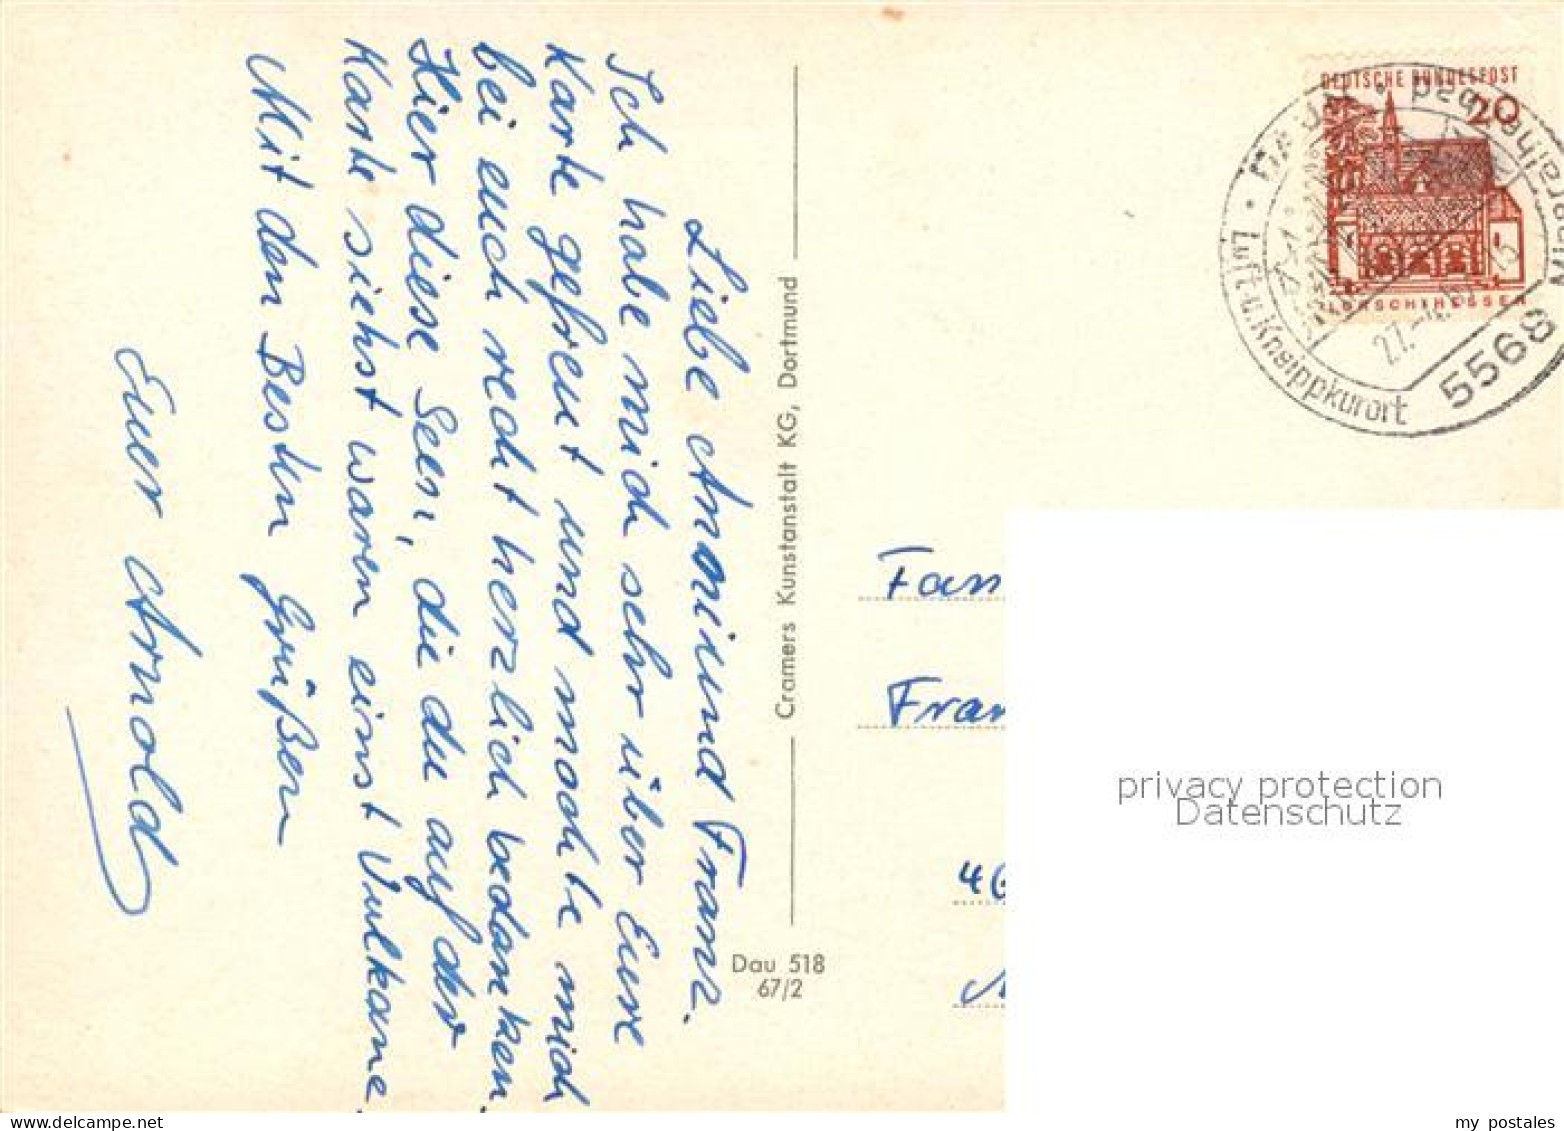 Liebe Anni und Franz.
Ich habe mich sehr über Eure
Karte gefreut und möchte mich
bei euch recht herzlich bedanken.
Hier diese Seen, die du auf der
Karte siehst waren einst Vulkane.
Mit den Besten Grüßen
Euer Arnold
Cramers Kunstanstalt KG, Dortmund
Dau 518
67/2
DEUTSCHE BUNDESPOST
20
LORSCH/HESSEN
DAUN
Mineralheilbad
Luft u. Kneippkurort
5568
Fam
Fran
privacy protection
Datenschutz
my postales